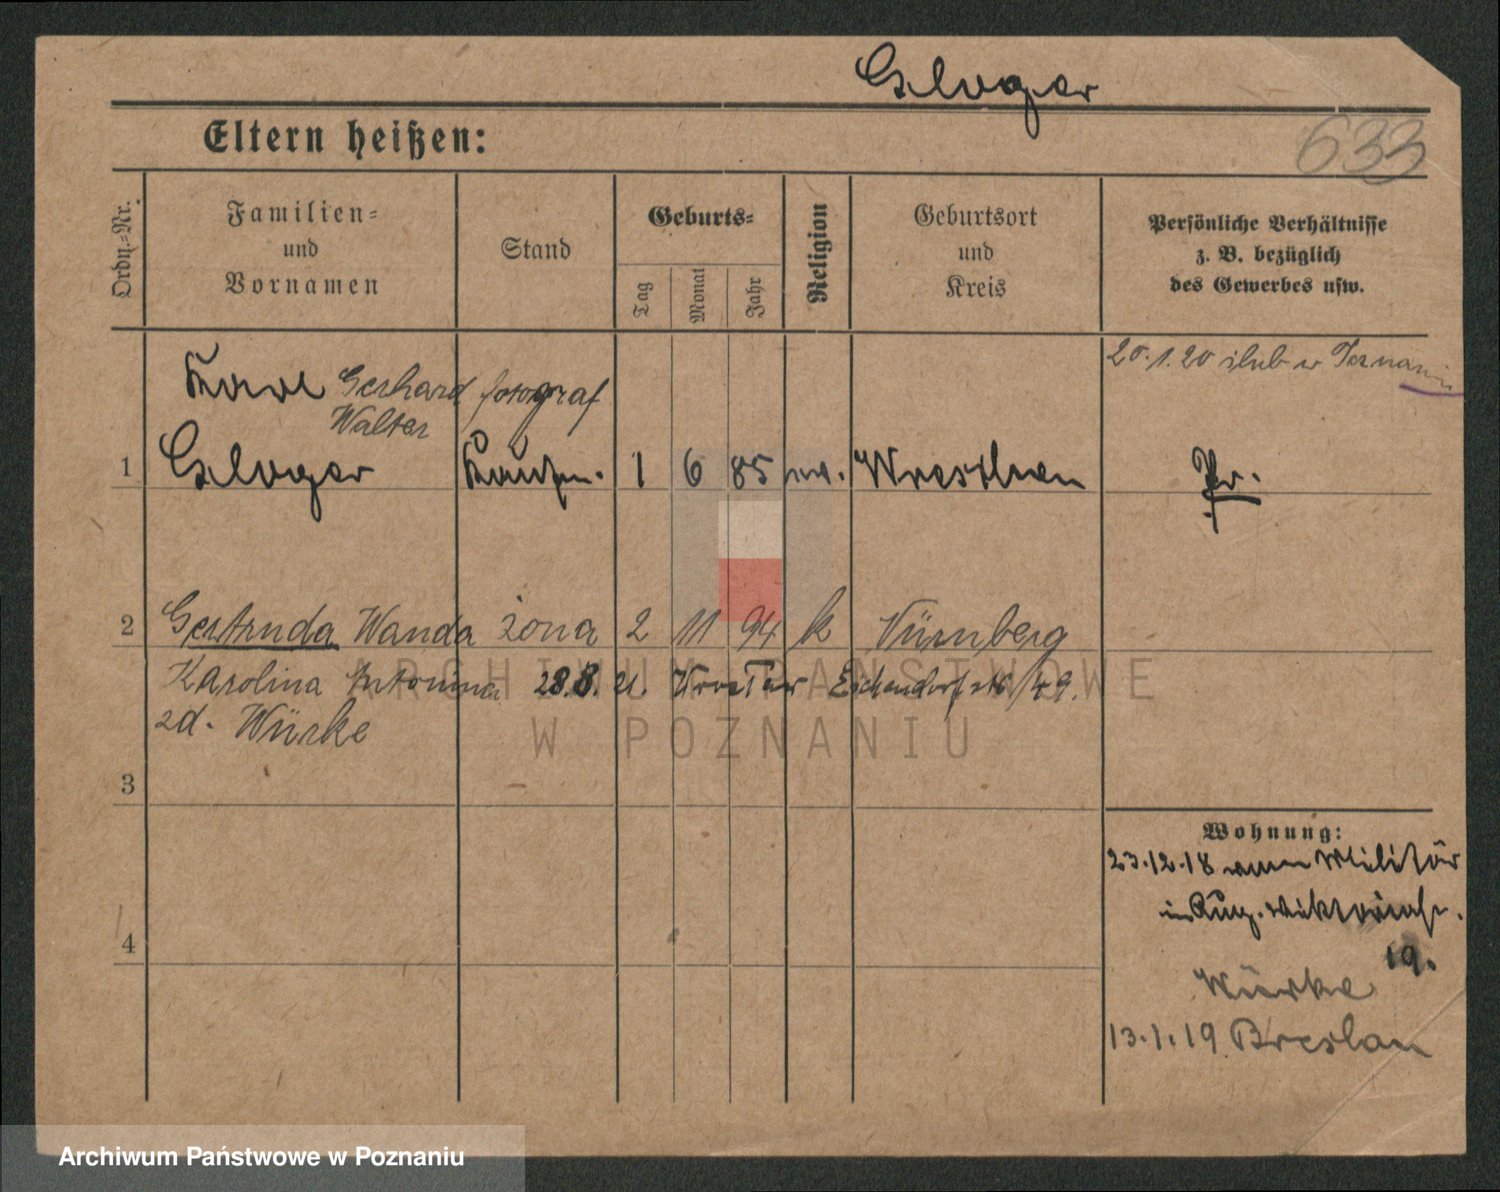 Gloger
Eltern heißen:
633
Ordn.-Nr.
Familien-
und
Vornamen
Stand
Geburts-
Tag
Monat
Jahr
Religion
Geburtsort
und
Kreis
Persönliche Verhältnisse
z. B. bezüglich
des Gewerbes usw.
20.1.20 ślub w Poznaniu
Karl Gerhard fotograf
Walter
1 Gloger Kaufm. 1 6 85 Wreschen Pr.
2 Gertruda Wanda żona 2 11 94 k Nürnberg
Karolina Antonina 28.8.21. Wrocław
zd. Würke
3
Wohnung:
23.12.18 vom Militär
4
19.
Würke
13.1.19 Breslau
ARCHIWUM PAŃSTWOWE
W POZNANIU
Archiwum Państwowe w Poznaniu